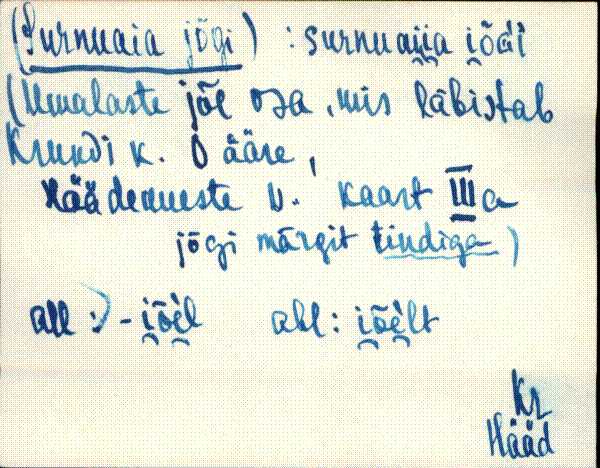 (Surnuaia jõgi) : surnuaiia i̯õɢi
(Umalaste jõe osa, mis läbistab
Krundi k. O ääre,
Häädemeeste v. kaart III a
jõgi märgit tindiga)
all :) - i̯õel abl: i̯õelt
Kr
Hääd